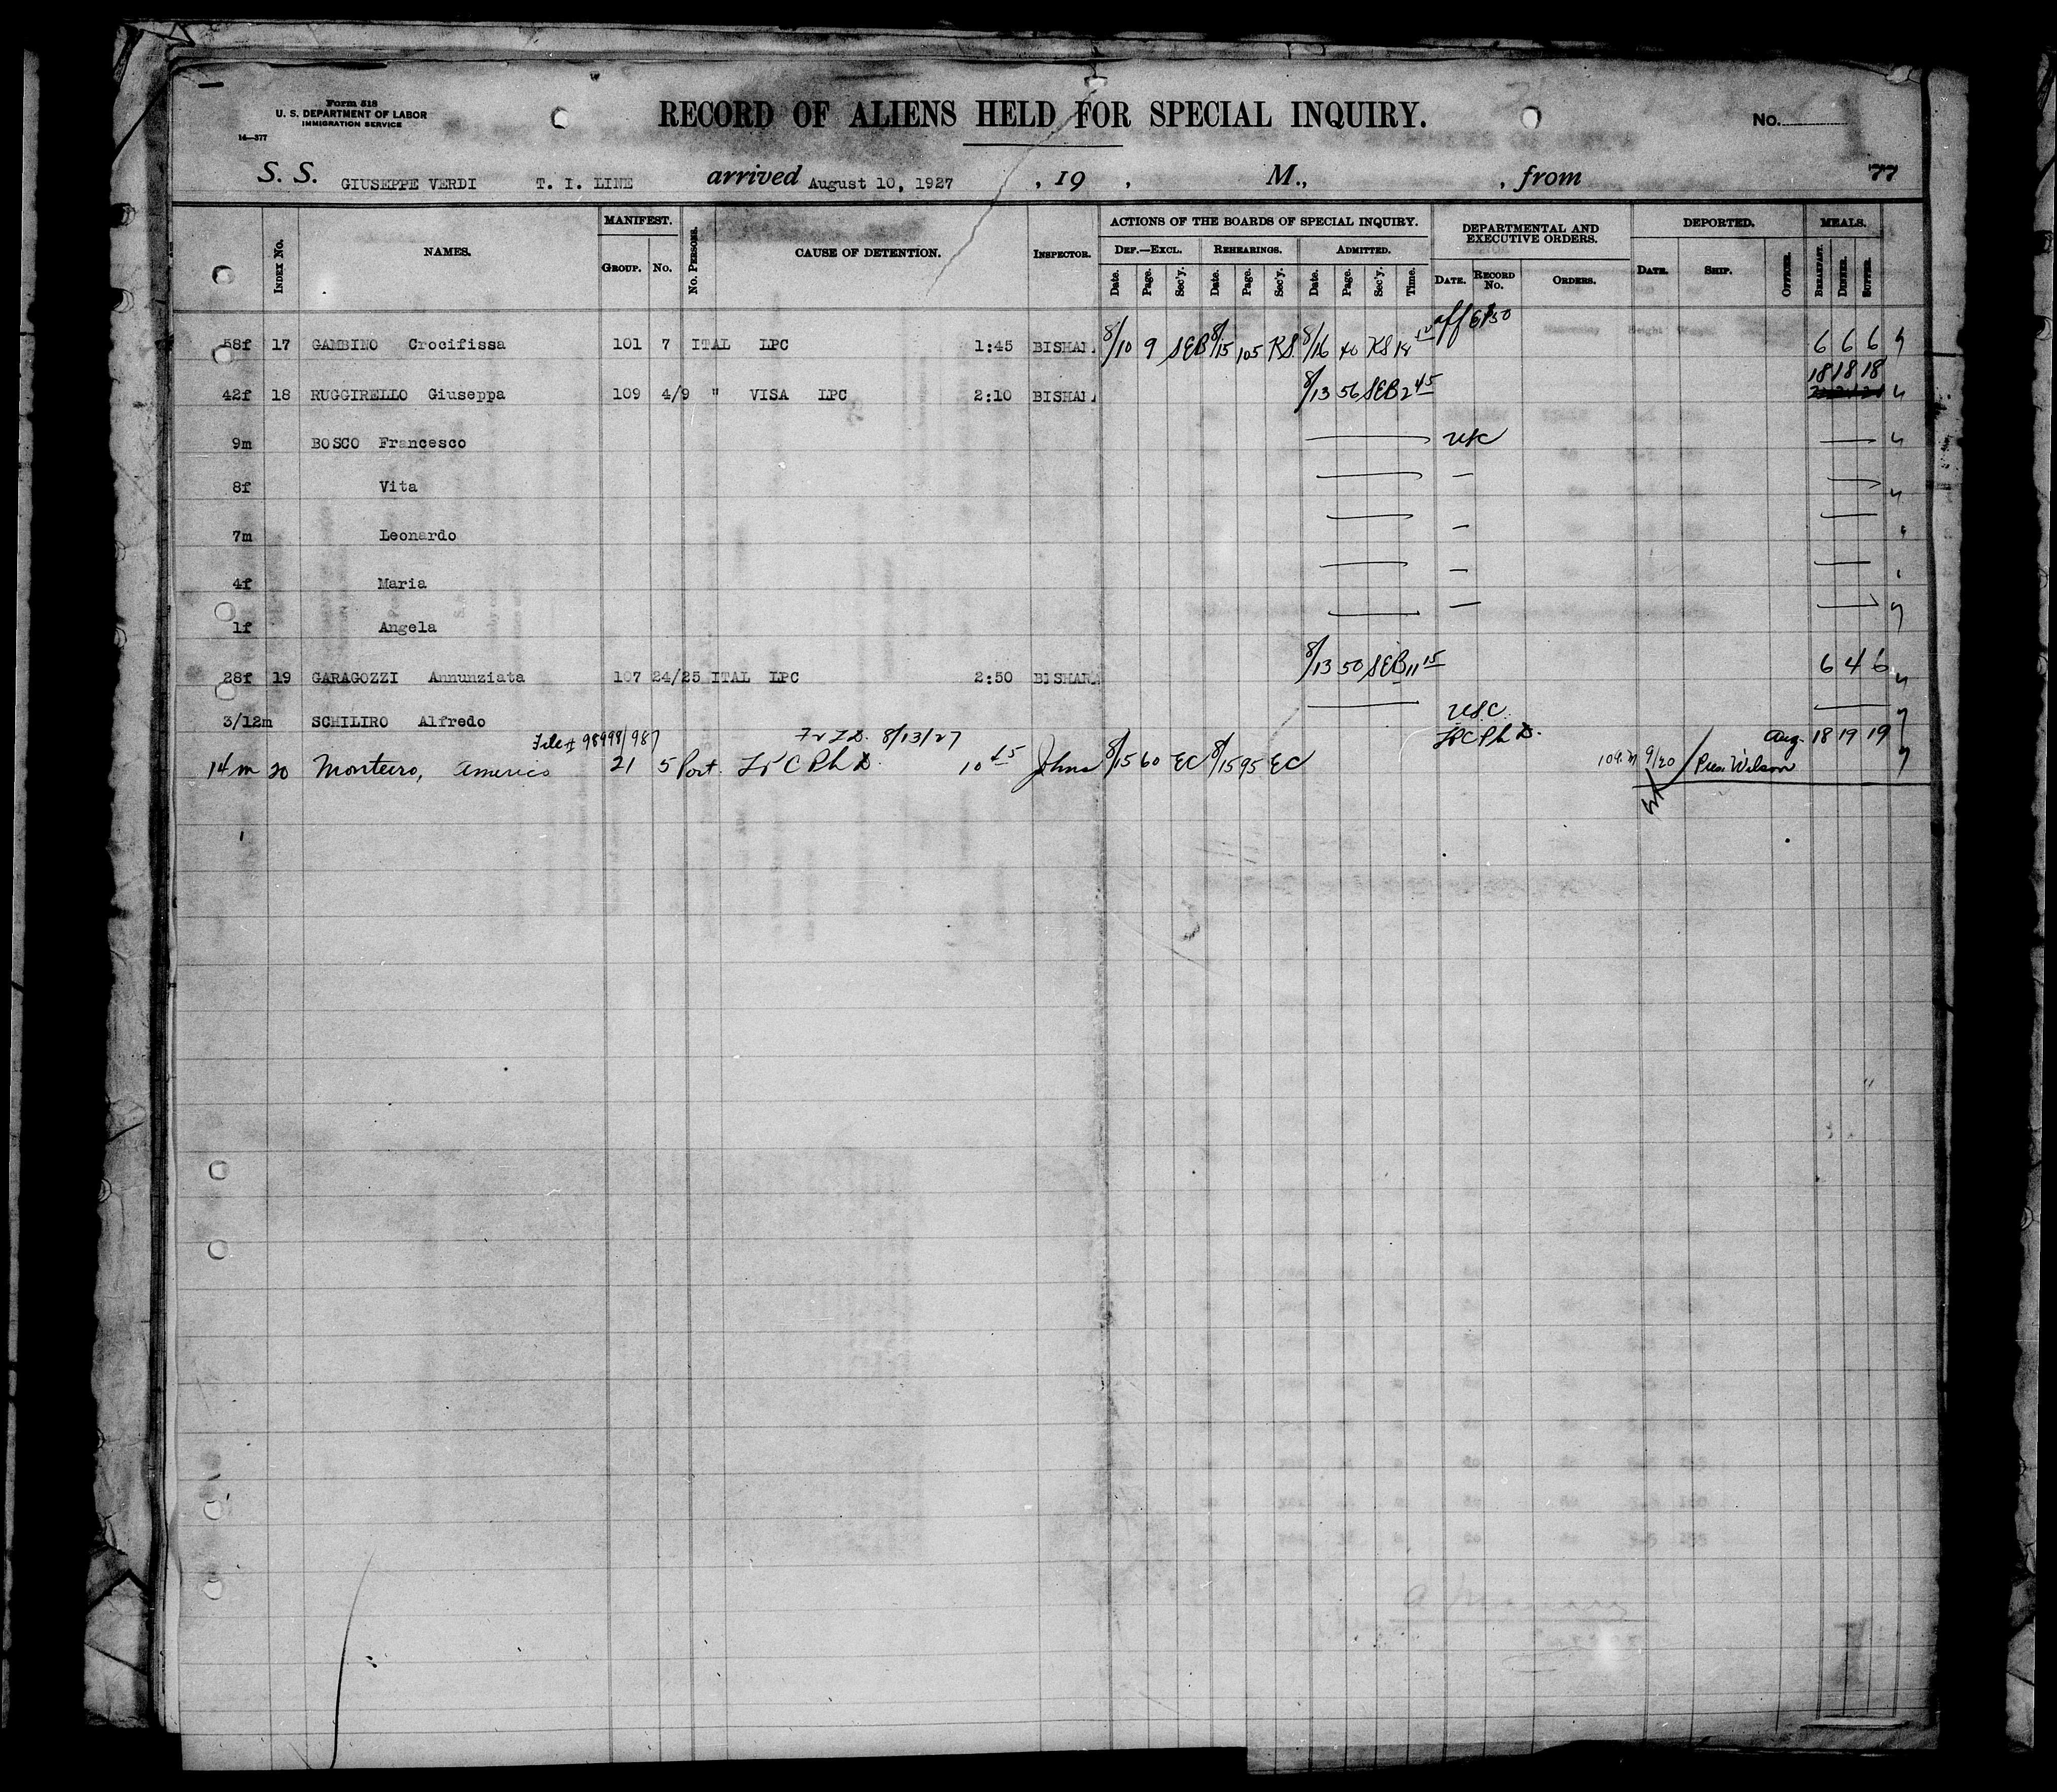 Form 518
U. S. DEPARTMENT OF LABOR
IMMIGRATION SERVICE
14—377
RECORD OF ALIENS HELD FOR SPECIAL INQUIRY.
No.
S. S. GIUSEPPE VERDI T. I. LINE arrived August 10, 1927 , 19 , M., , from 77
INDEX No. NAMES. MANIFEST. GROUP. No. No. PERSONS. CAUSE OF DETENTION. INSPECTOR. ACTIONS OF THE BOARDS OF SPECIAL INQUIRY. DEPARTMENTAL AND EXECUTIVE ORDERS. DEPORTED. MEALS.
DEF.—EXCL. REHEARINGS. ADMITTED.
Date. Page. Sec'y. Date. Page. Sec'y. Date. Page. Sec'y. Time. DATE. RECORD No. ORDERS. DATE. SHIP. OFFICER. BREAKFAST. DINNER. SUPPER.
58f 17 GAMBINO Crocifissa 101 7 ITAL LPC 1:45 BISHAR 8/10 9 SEB 8/15 105 RS 8/16 40 RS 6 6 6
18 18 18
42f 18 RUGGIRELLO Giuseppa 109 4/9 " VISA LPC 2:10 BISHAR 8/13 56 SEB 2 45
9m BOSCO Francesco USC
8f Vita
7m Leonardo
4f Maria
1f Angela
28f 19 GARAGOZZI Annunziata 107 24/25 ITAL LPC 2:50 BISHARA 8/13 50 SEB 11 15 6 4 6
3/12m SCHILIRO Alfredo USC
File # 98998/987 8/13/27 LPC Ph D. Aug. 18 19 19
14m 20 Monteiro, Americo 21 5 Port. LPC Ph D. 10 45 Johns 8/15 60 EC 8/15 95 EC 9/20 Pres. Wilson